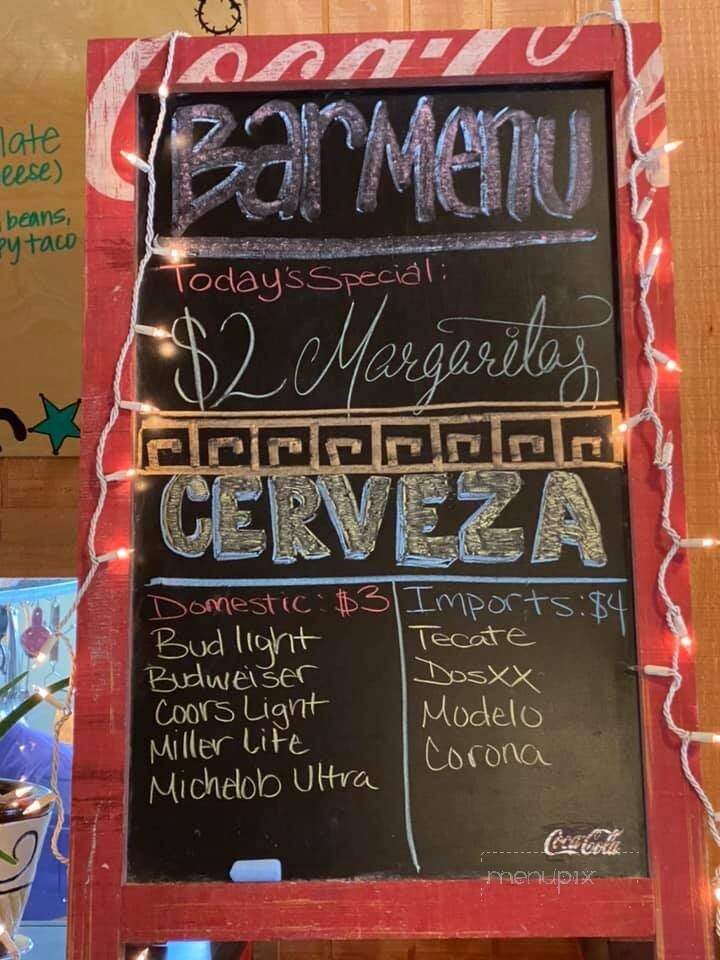 Coca-Co
late
eese)
beans,
py taco
Bar Menu
Today's Special:
$2 Margaritas
CERVEZA
Domestic: $3
Bud light
Budweiser
Coors Light
Miller Lite
Michelob Ultra
Imports: $4
Tecate
Dos XX
Modelo
Corona
Coca-Cola
menupix